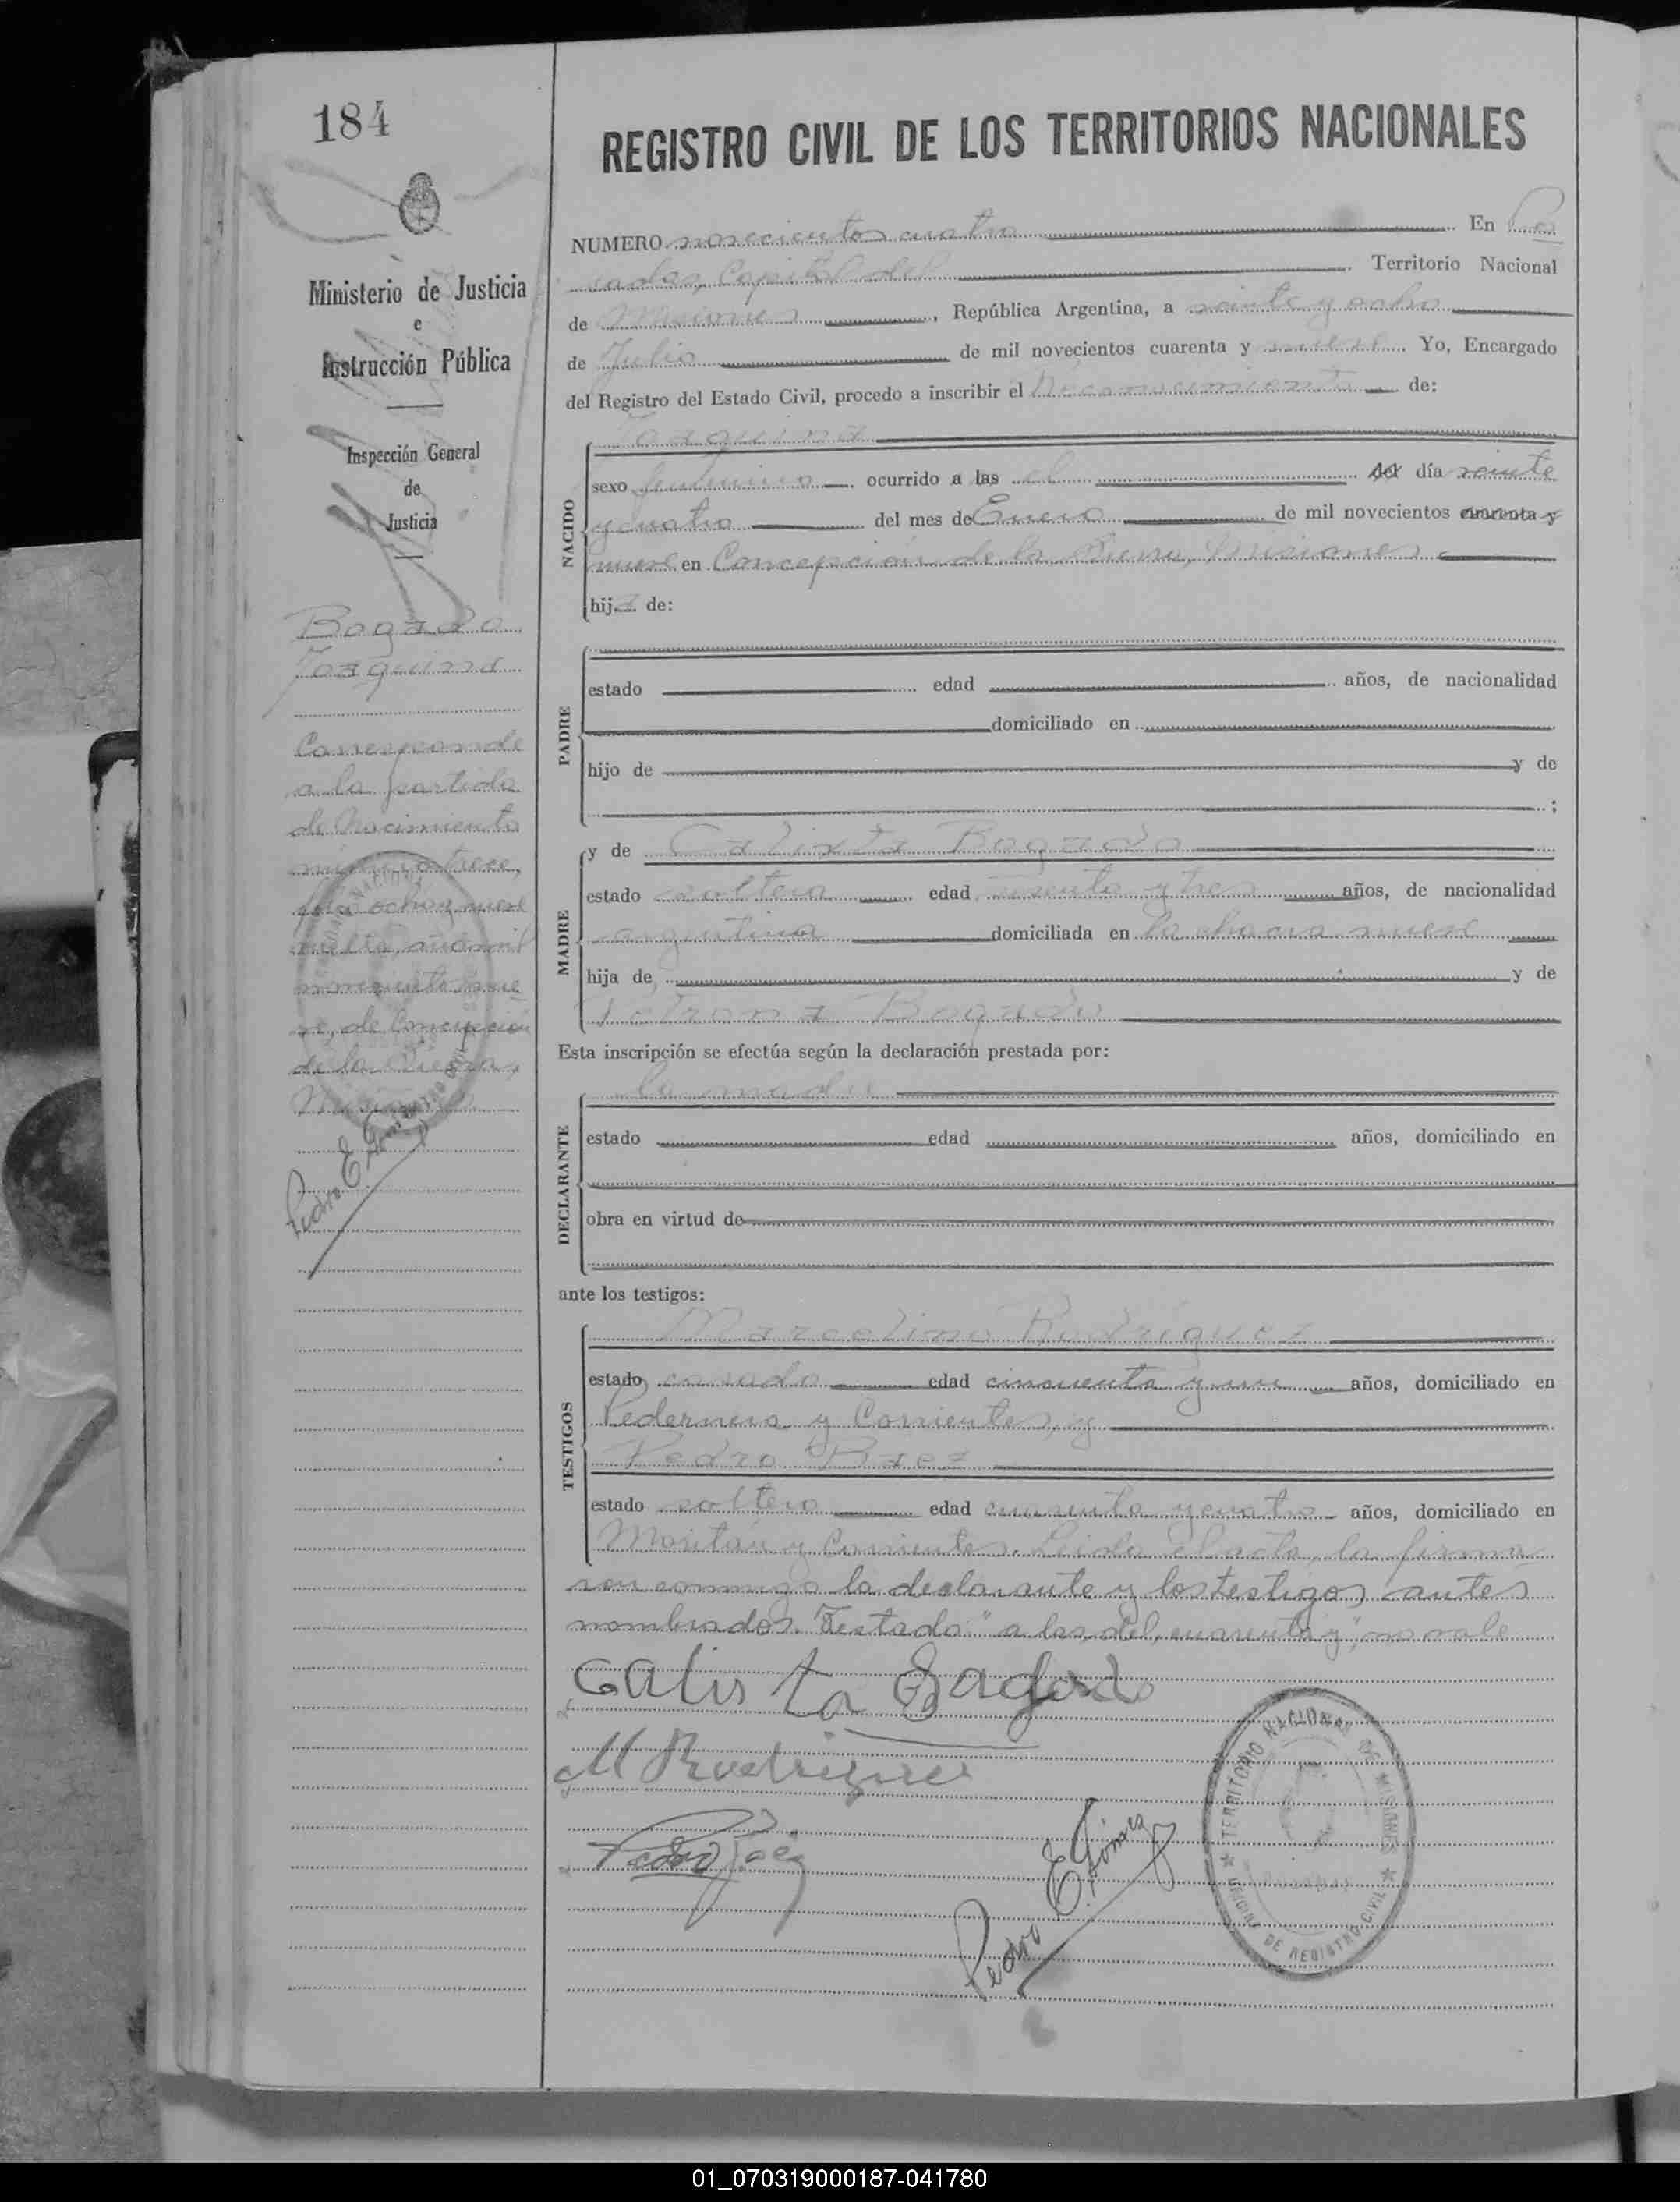 184
REGISTRO CIVIL DE LOS TERRITORIOS NACIONALES
Ministerio de Justicia
e
Instrucción Pública
Inspección General
de
Justicia
Bogado
Joaquina
Corresponde
a la partida
de Nacimiento
número trece,
folio ocho y nueve
vuelto, año mil
novecientos nue-
ve, de Concepción
de la Sierra,
Misiones
Pedro E. Gómez
NUMERO novecientos cuatro En Po
sadas, Capital del Territorio Nacional
de Misiones, República Argentina, a veinte y ocho
de Julio de mil novecientos cuarenta y nueve. Yo, Encargado
del Registro del Estado Civil, procedo a inscribir el Reconocimiento de:
NACIDO
Joaquina
sexo femenino ocurrido a las el del día veinte
y cuatro del mes de Enero de mil novecientos cuarenta y
nueve en Concepción de la Sierra, Misiones
hija de:
PADRE
estado edad años, de nacionalidad
domiciliado en
hijo de y de
;
MADRE
y de Calixta Bogado
estado soltera edad y tres años, de nacionalidad
argentina domiciliada en la chacra nueve
hija de y de
Petrona Bogado
Esta inscripción se efectúa según la declaración prestada por:
DECLARANTE
la madre
estado edad años, domiciliado en
obra en virtud de
ante los testigos:
TESTIGOS
Marcelino Rodríguez
estado casado edad cincuenta y un años, domiciliado en
Pedernera y Corrientes, y
Pedro Baez
estado soltero edad cuarenta y cuatro años, domiciliado en
y Corrientes. Leida el acta, la firma
ron conmigo la declarante y los testigos antes
nombrados. Testado: "a las, del, cuarenta y", no vale
Calista Bagado
M Rodriguez
Pedro Báez
Pedro E. Gómez
TERRITORIO NACIONAL DE MISIONES
OFICINA DE REGISTRO CIVIL
01_070319000187-041780